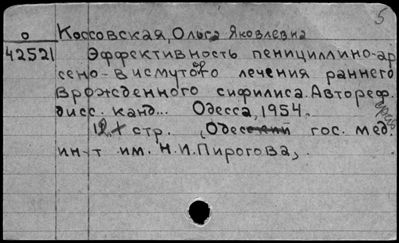 5
о Коссовская, Ольга Яковлевна
42521 Эффективность пенициллино-ар-
сено-висмутого лечения раннего
врожденного сифилиса. Автореф.
дисс. канд... Одесса, 1954.
стр. (Одесский гос. мед.
ин-т им. Н.И.Пирогова).